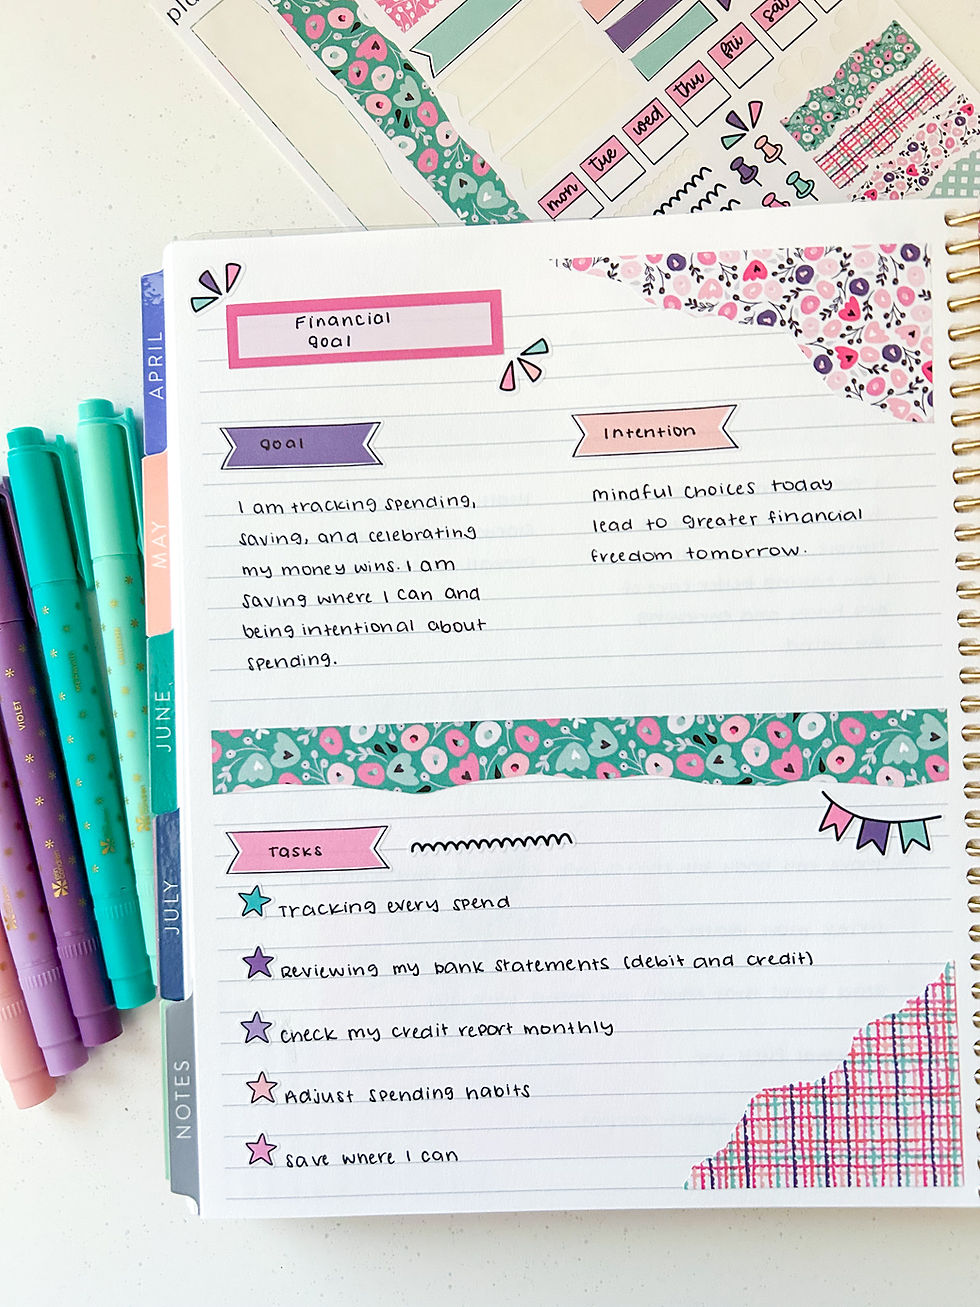 pla
mon
tue
wed
thu
fri
sat
Financial
goal
goal
Intention
I am tracking spending,
saving, and celebrating
my money wins. I am
saving where I can and
being intentional about
spending.
mindful choices today
lead to greater financial
freedom tomorrow.
Tasks
Tracking every spend
Reviewing my bank statements (debit and credit)
Check my credit report monthly
Adjust spending habits
save where I can
APRIL
MAY
JUNE
JULY
NOTES
VIOLET